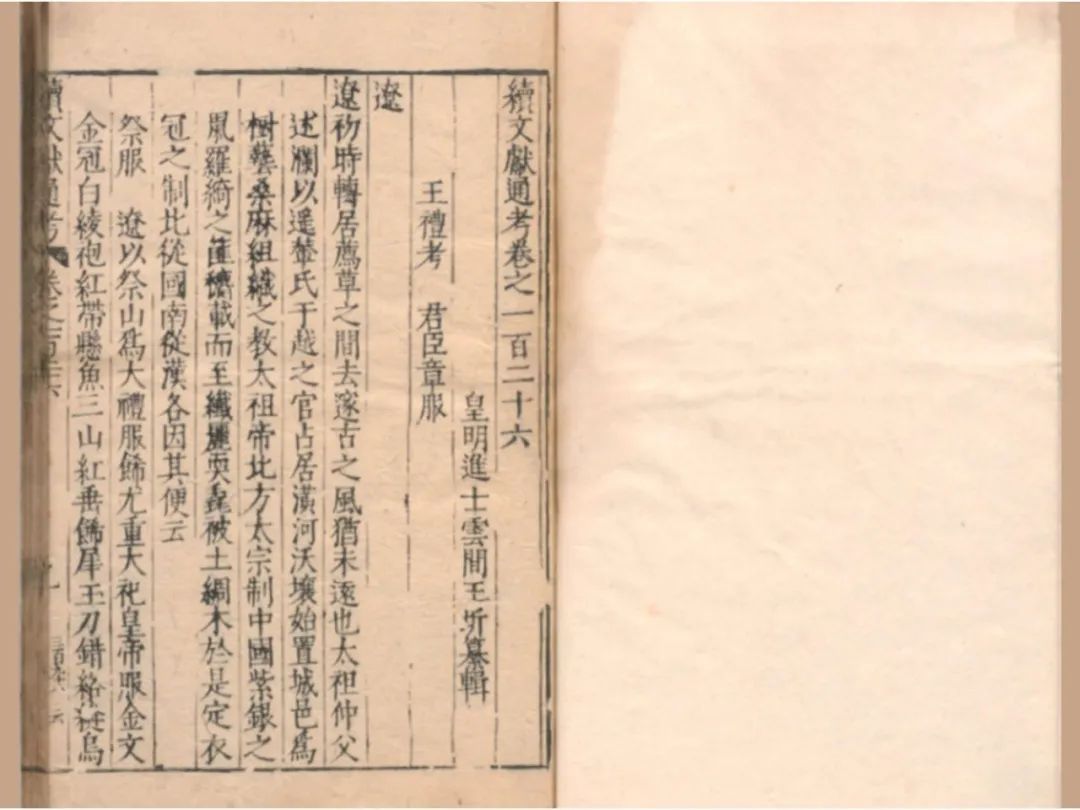 續文獻通考卷之一百二十六
皇明進士雲間王圻纂輯
王禮考 君臣章服
遼
遼初時轉居薦草之間去邃古之風猶未遠也太祖仲父
述瀾以遥輦氏于越之官占居潢河沃壤始置城邑爲
樹藝桑麻組織之教太祖帝北方太宗制中國紫銀之
鼠羅綺之篚穪載而至纎麗耎毳被土綢木於是定衣
冠之制北從國南從漢各因其便云
祭服 遼以祭山爲大禮服餙尤重大祀皇帝服金文
金冠白綾袍紅帶懸魚三山紅垂餙犀玉刀錯絡縫烏
續文獻通考 卷之一百二十六